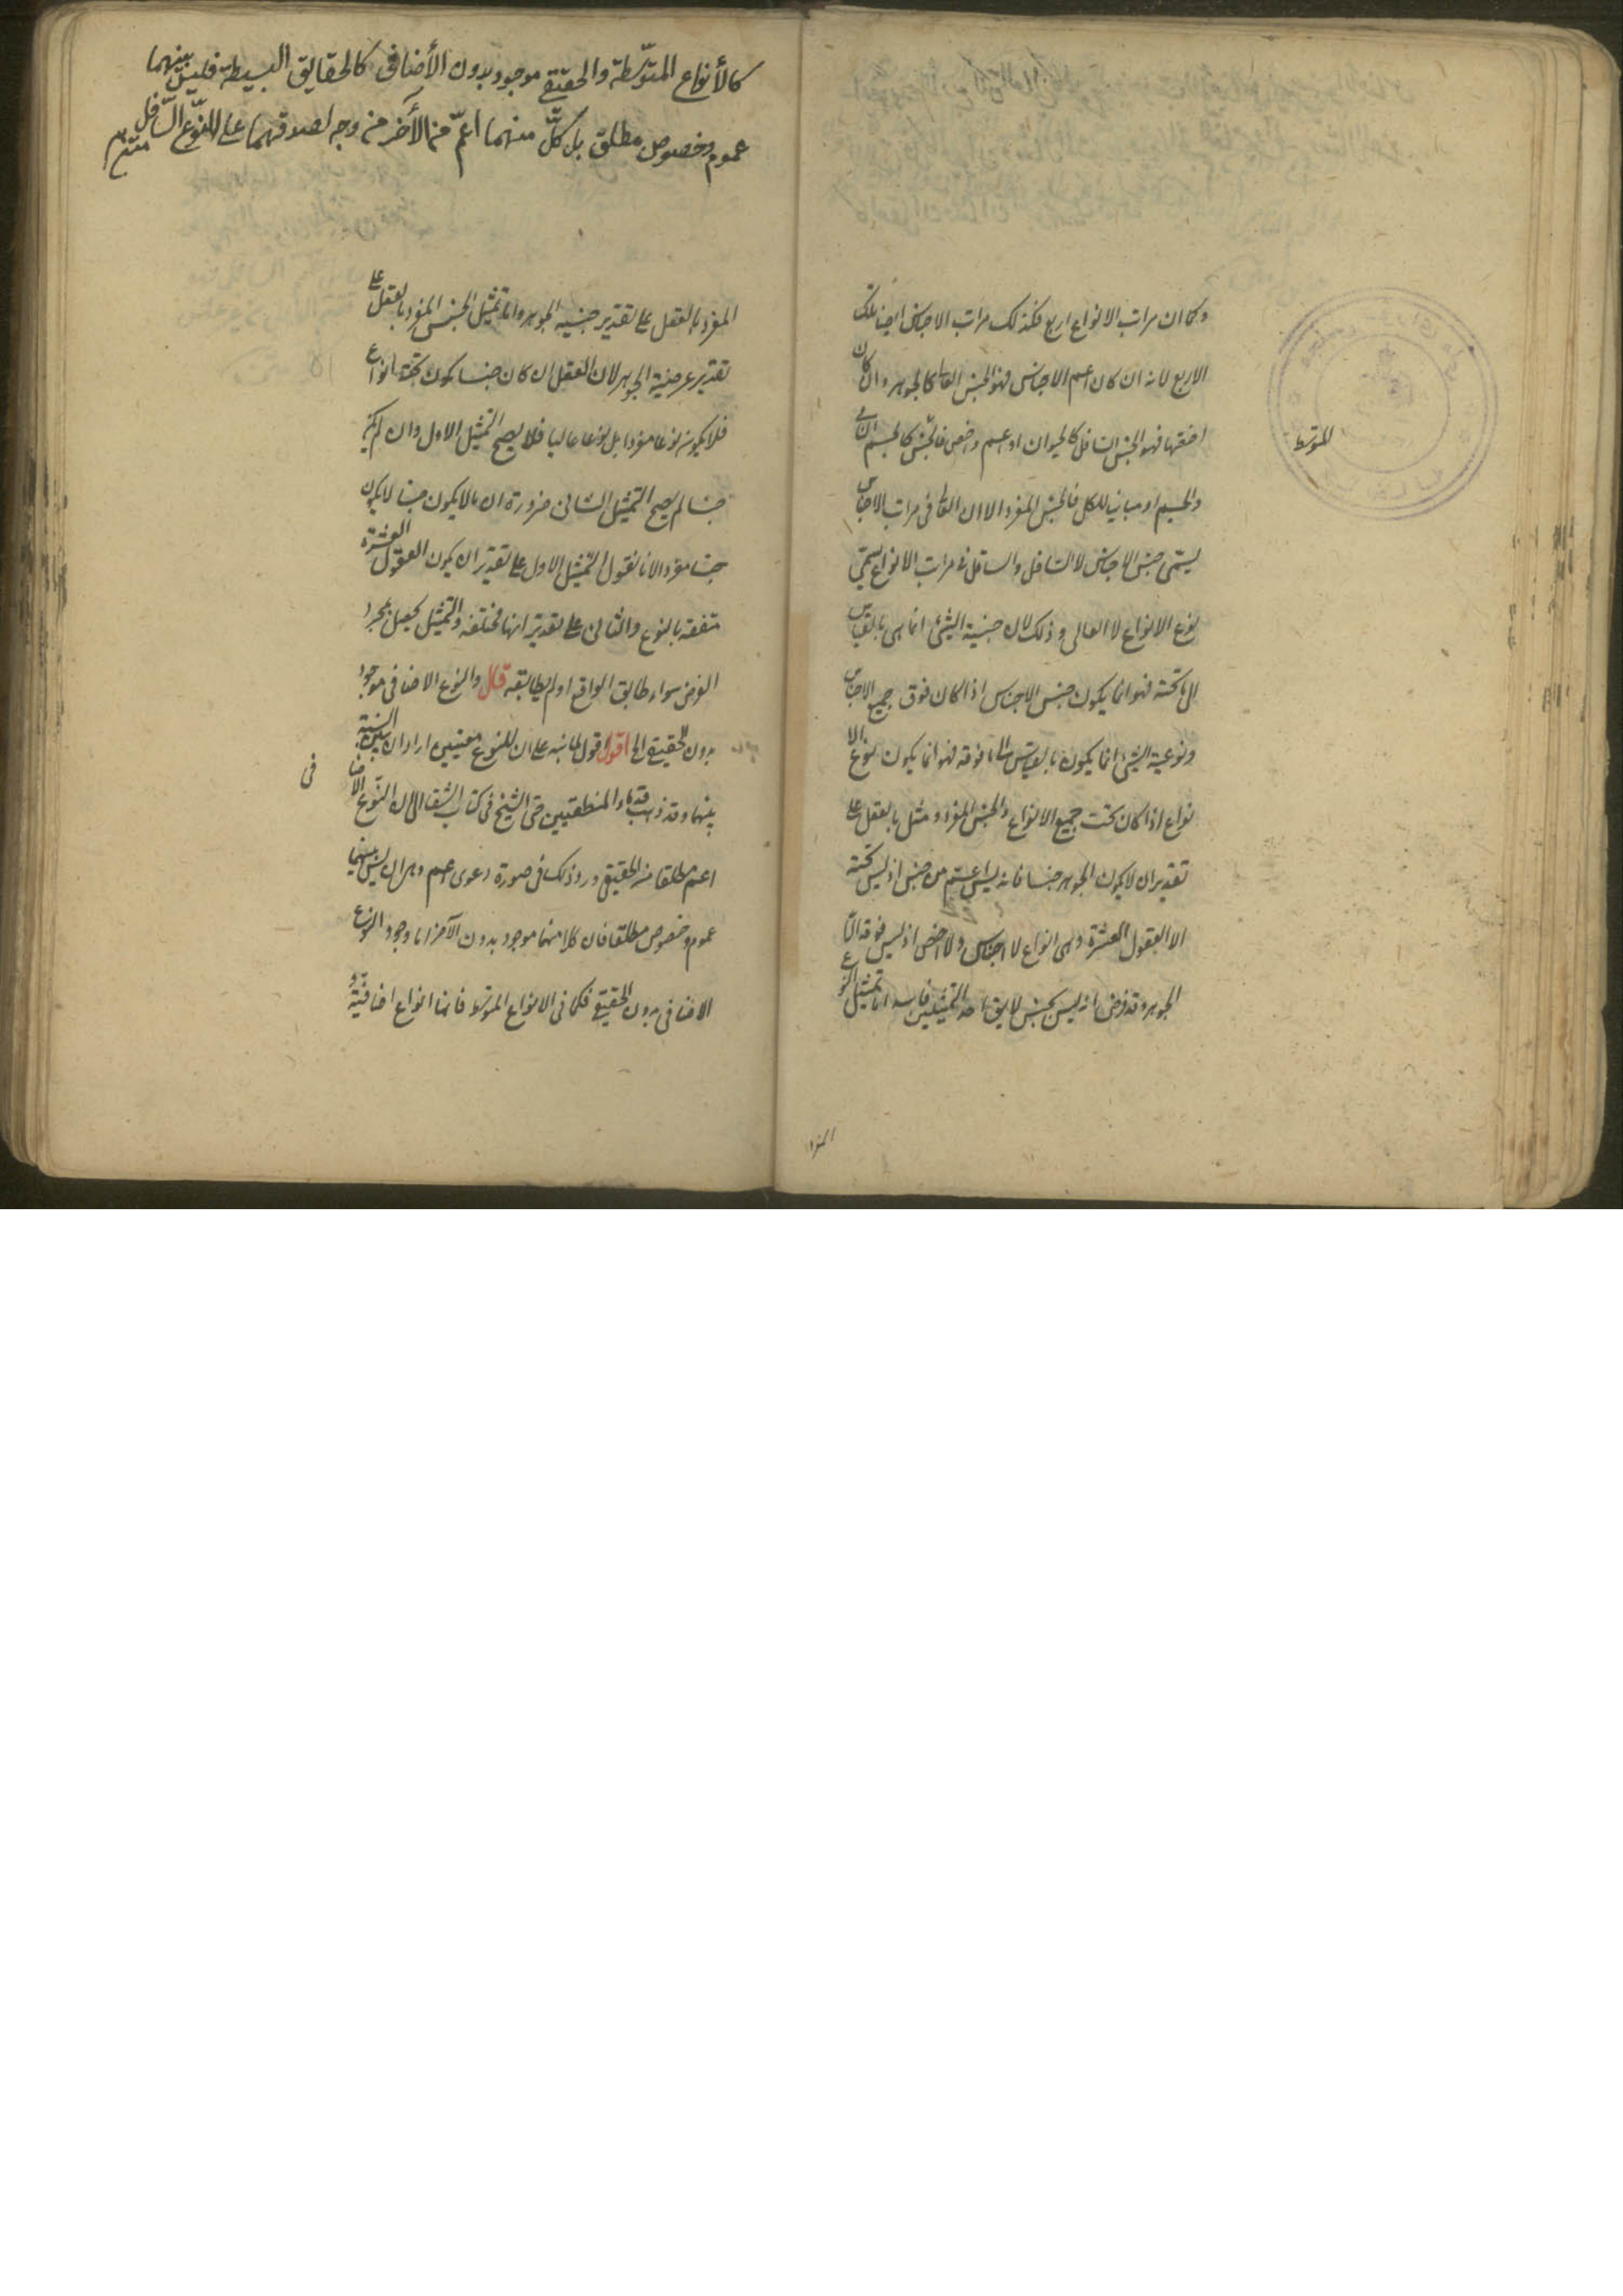 وكما ان مراتب الانواع اربع فكذلك مراتب الاجناس ايضا تلك
الاربع لانه ان كان اعم الاجناس فهو الجنس العالى كالجوهر وان كان
اخصها فهو الجنس السافل كالحيوان او اعم واخص فالجنس كالجسم النامى
المتوسط
والجسم او مباينا للكل فالجنس المفرد الا ان العالى فى مراتب الاجناس
يسمى جنس الاجناس لا السافل والسافل فى مراتب الانواع يسمى
نوع الانواع لا العالى وذلك لان جنسية الشئ انما هى بالقياس
الى ما تحته فهو انما يكون جنس الاجناس اذا كان فوق جميع الاجناس
ونوعية الشئ انما يكون بالقياس الى ما فوقه فهو انما يكون نوع الا
نواع اذا كان تحت جميع الانواع والجنس المفرد ومثل بالعقل على
تقدير ان لا يكون الجوهر جنسا فانه ليس اعم من جنس اذ ليس تحته
الا العقول العشرة وهى انواع لا اجناس ولا اخص اذ ليس فوقه الا
الجوهر وقد فرض انه ليس بجنس لا يق احد التمثيلين فاسد اما تمثيل النوع
المفرد
كالأنواع المتوسّطة والحقيقى موجود بدون الأضافى كالحقايق البسيطة فليس بينهما
عموم وخصوص مطلق بل كلّ منهما اعمّ من الأخر من وجه لصدقهما على النوّع السّافل متن
المفرد بالعقل على تقدير جنسية الجوهر واما تمثيل الجنس المفرد بالعقل على
تقدير عرضية الجوهر لان العقل ان كان جنسا يكون تحته انواع
فلا يكون نوعا مفردا بل نوعا عاليا فلا يصح التمثيل الاول وان لم يكن
جنسا لم يصح التمثيل الثانى ضرورة ان ما لا يكون جنسا لا يكون
جنسا مفردا لانا نقول التمثيل الاول على تقدير ان يكون العقول العشرة
متفقة بالنوع والثانى على تقدير انها مختلفة والتمثيل يحصل بمجرد
الفرض سواء طابق الواقع او لم يطابقه قال والنوع الاضافى موجود
بدون الحقيقى الى اقول اقول لما نبه على ان للنوع معنيين اراد ان يبين النسبة
بينهما وقد ذهب قدماء المنطقيين حتى الشيخ فى كتاب الشفا الى ان النوع الاضا
فى
اعم مطلقا من الحقيقى ورد ذلك فى صورة دعوى اعم وهى ان ليس بينهما
عموم وخصوص مطلقا فان كلا منهما موجود بدون الآخر اما وجود النوع
الاضافى بدون الحقيقى فكما فى الانواع المتوسطة فانها انواع اضافية و